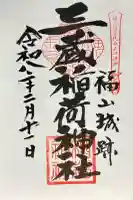 福山城跡
三蔵稲荷神社
令和八年二月日